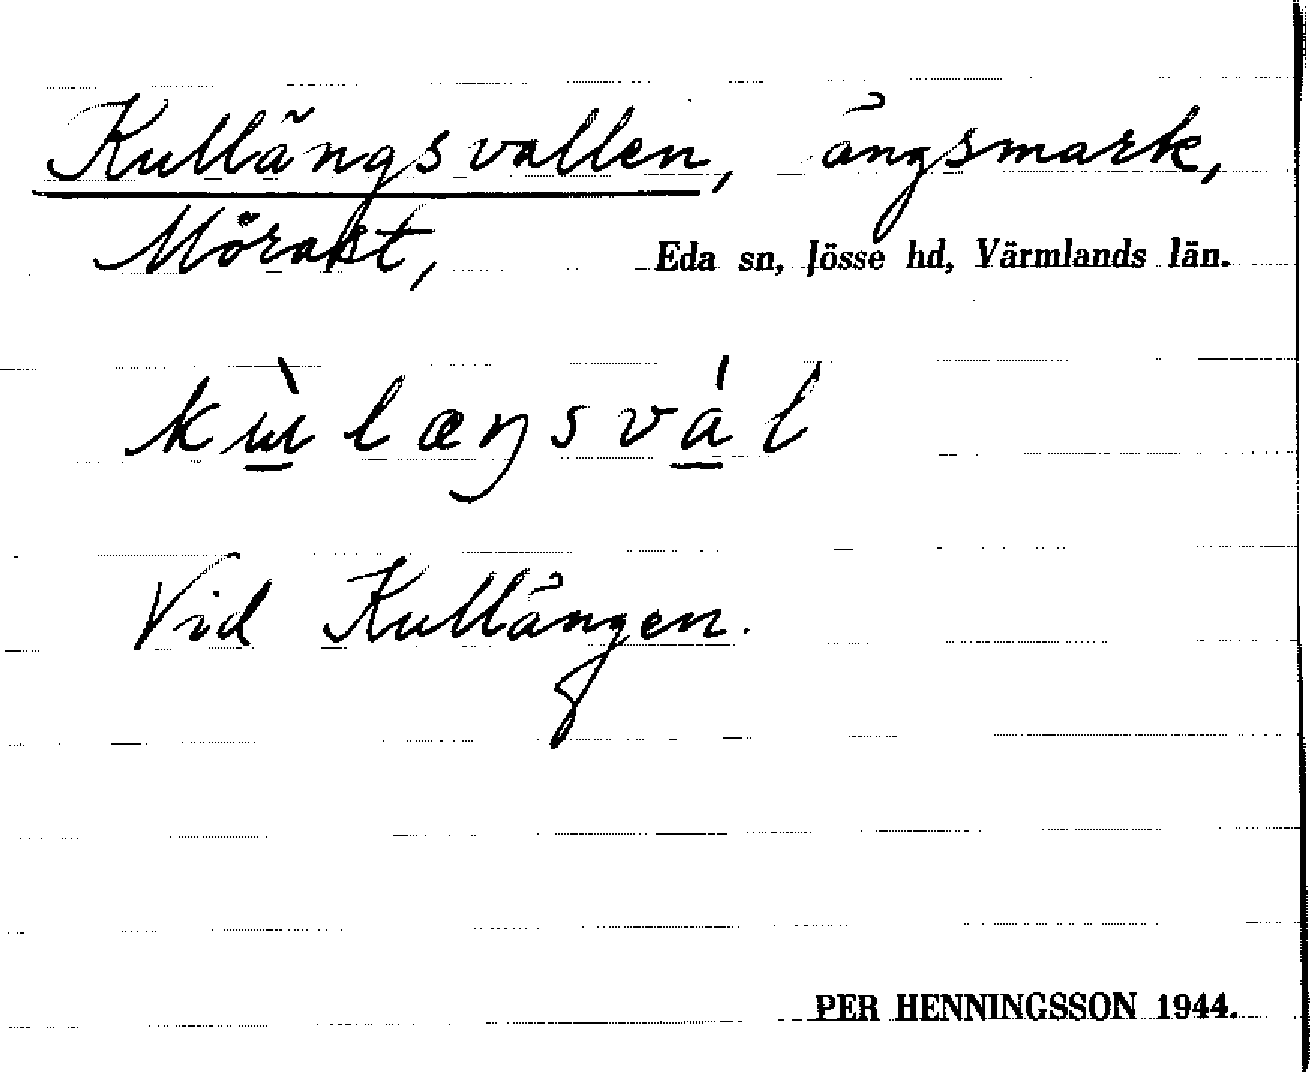 Kullängsvallen, ängsmark,
Mörast, Eda sn, Jösse hd, Värmlands län.
kɯ̀læŋsvál
Vid Kullängen.
PER HENNINGSSON 1944.